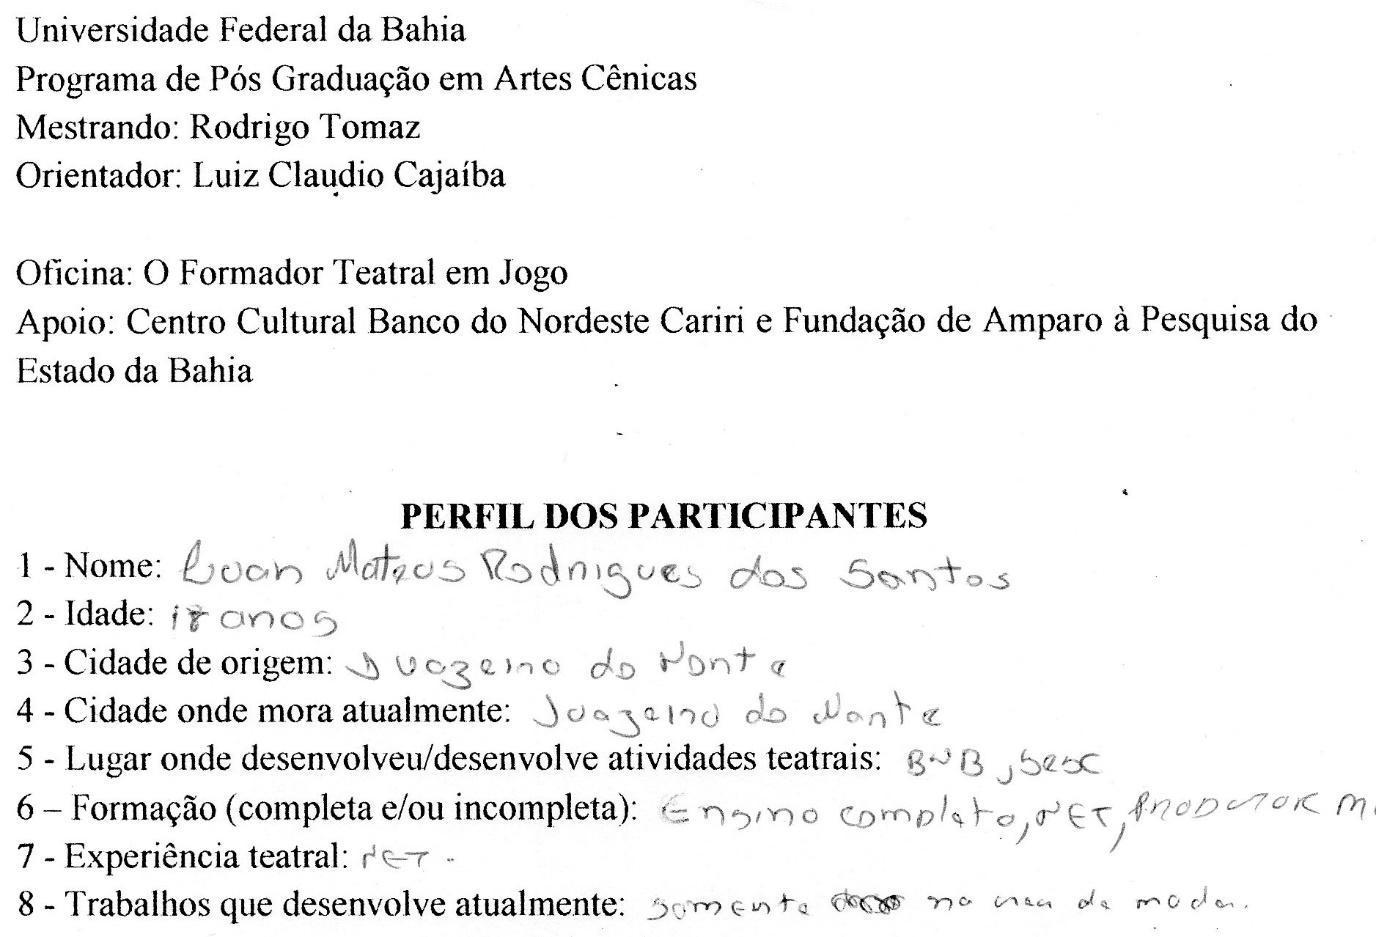 Universidade Federal da Bahia
Programa de Pós Graduação em Artes Cênicas
Mestrando: Rodrigo Tomaz
Orientador: Luiz Claudio Cajaíba
Oficina: O Formador Teatral em Jogo
Apoio: Centro Cultural Banco do Nordeste Cariri e Fundação de Amparo à Pesquisa do
Estado da Bahia
PERFIL DOS PARTICIPANTES
1 - Nome: Luan Mateus Rodrigues dos Santos
2 - Idade: anos
3 - Cidade de origem: Juazeiro do Norte
4 - Cidade onde mora atualmente: Juazeiro do Norte
5 - Lugar onde desenvolveu/desenvolve atividades teatrais: BNB, sesc
6 – Formação (completa e/ou incompleta): Ensino completo, NET, PRODUTOR
7 - Experiência teatral: NET.
8 - Trabalhos que desenvolve atualmente: somente na area de moda.